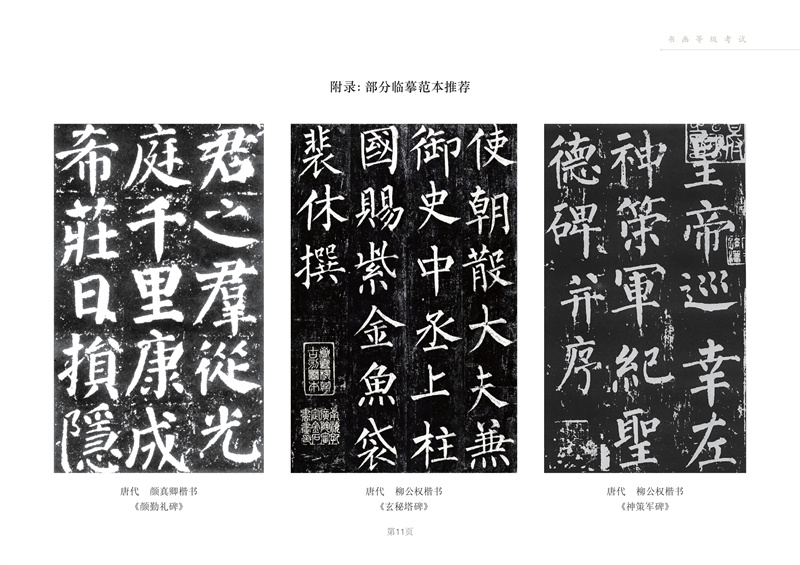 书画等级考试
附录：部分临摹范本推荐
君之羣從光
庭千里康成
希莊日損隱
使朝散大夫兼
御史中丞上柱
國賜紫金魚袋
裴休撰
皇帝巡幸左
神策軍紀聖
德碑并序
唐代 颜真卿楷书
《颜勤礼碑》
唐代 柳公权楷书
《玄秘塔碑》
唐代 柳公权楷书
《神策军碑》
第11页